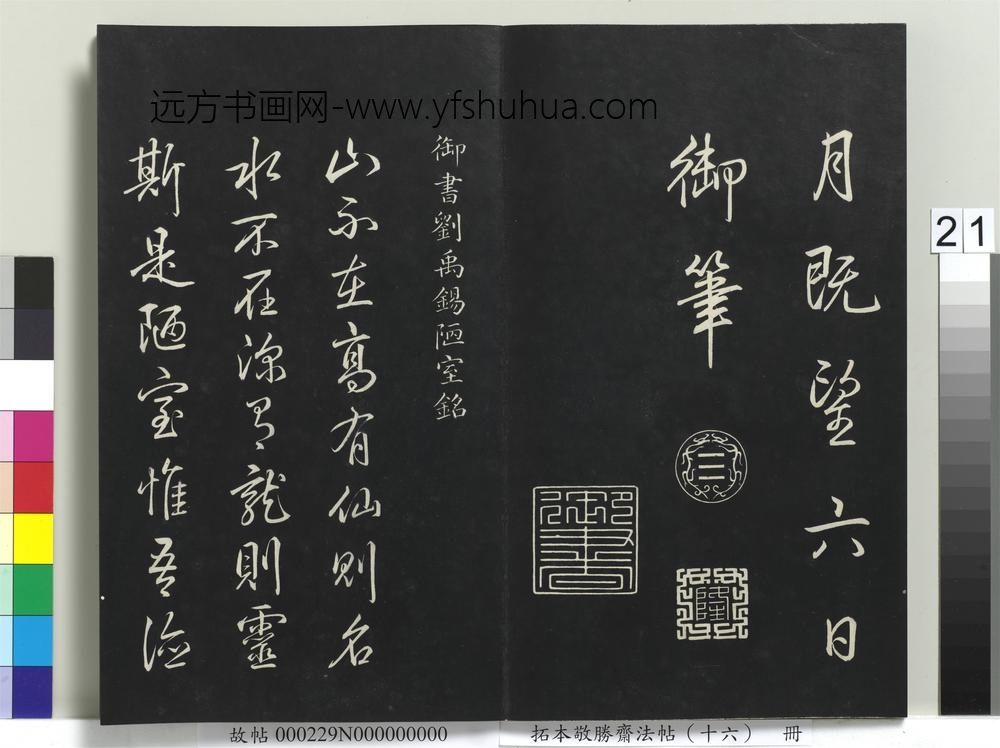 远方书画网-www.yfshuhua.com
月既望六日
御筆
☰
隆
御書
御書劉禹錫陋室銘
山不在高有仙則名
水不在深有龍則靈
斯是陋室惟吾德
21
故帖 000229N000000000
拓本敬勝齋法帖（十六） 冊